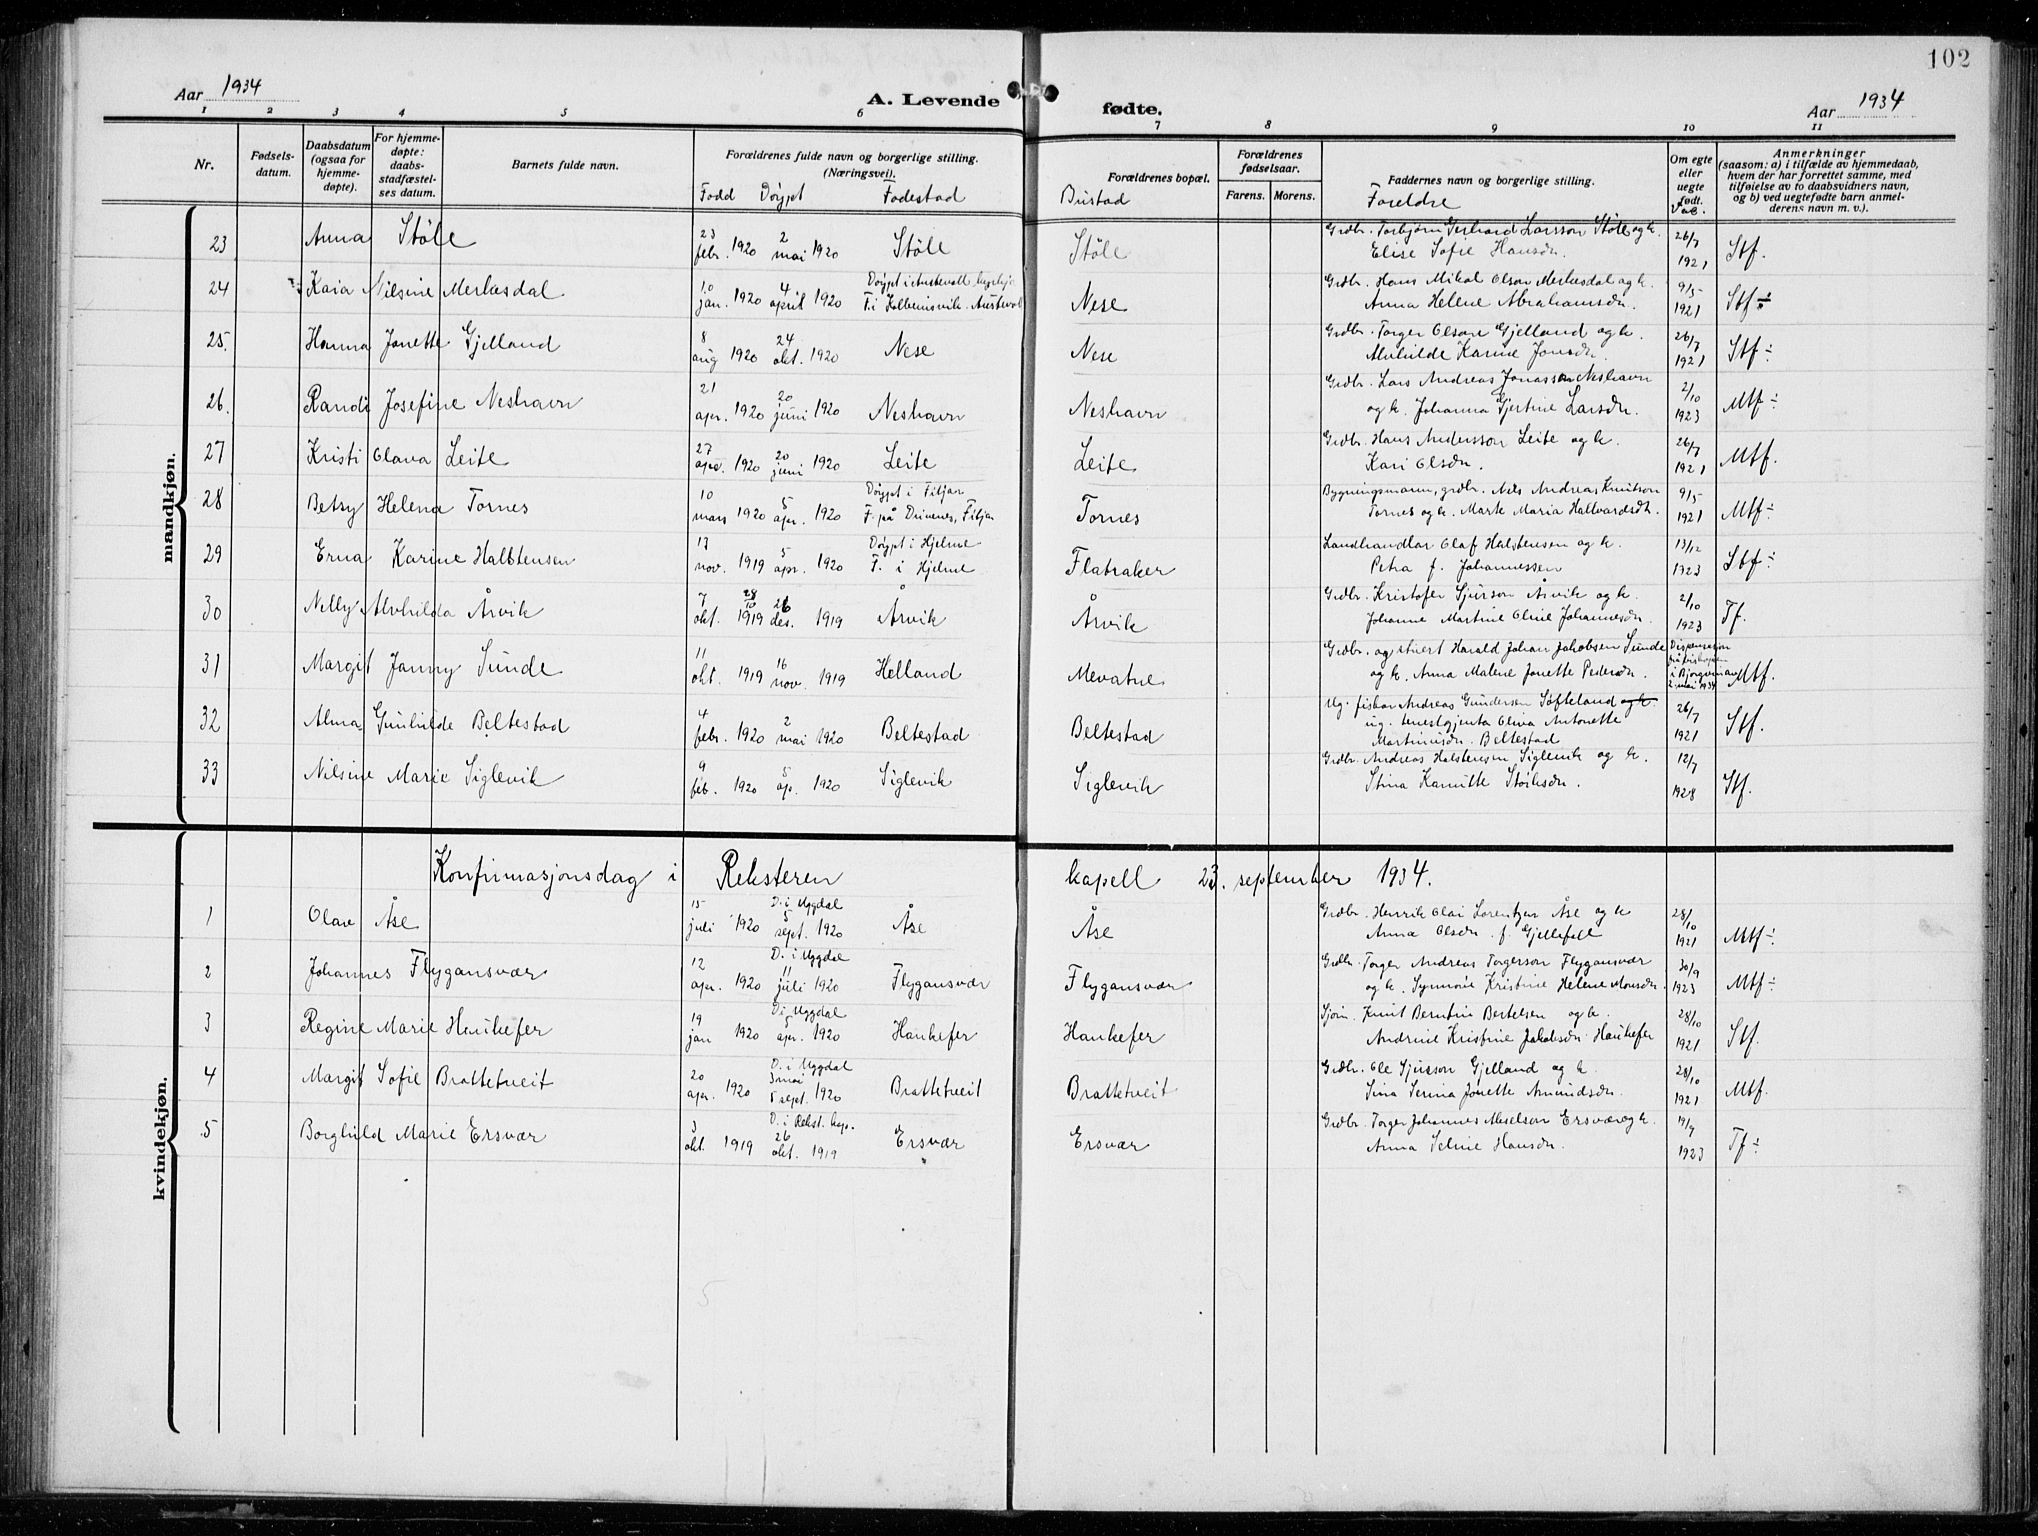 102
Aar 1934
A. Levende fødte.
Aar 1934
1 2 3 4 5 6 7 8 9 10 11
Nr.
Fødsels-
datum.
Daabsdatum
(ogsaa for
hjemme-
døpte).
For hjemme-
døpte:
daabs-
stadfæstel-
ses datum.
Barnets fulde navn.
Forældrenes fulde navn og borgerlige stilling.
(Næringsvei).
Fødd Døypt Fødestad
Forældrenes bopæl.
Bustad
Forældrenes
fødselsaar.
Farens. Morens.
Faddernes navn og borgerlige stilling.
Foreldre
Om egte
eller
uegte
født.
Vac.
Anmerkninger
(saasom: a) i tilfælde av hjemmedaab,
hvem der har forrettet samme, med
tilføielse av to daabsvidners navn,
og b) ved uegtefødte barn anmel-
derens navn m. v.).
mandkjøn.
23 Anna Støle 23 febr. 1920 2 mai 1920 Støle Støle Grdbr. Torbjørn Gerhard Larsson Støle og k. 26/7 1921 Stf.
Elise Sofie Hansdr.
24 Kaia Nilsine Merkesdal 10 jan. 1920 4 april 1920 Døypt i Austevoll
F. i Kolbeinsvik. Austevoll Nese Grdbr. Hans Mikal Olson Merkesdal og k. 9/5 1921 Stf ÷
Anna Helene Abrahamsdr.
25. Hanna Jonette Gjelland 8 aug 1920 24 okt. 1920 Nese Nese Grdbr. Torger Olson Gjelland og k. 26/7 1921 Stf ÷
Alvhilde Karine Jonsdr.
26. Randi Josefine Neshavn 21 apr. 1920 20 juni 1920 Neshavn Neshavn Grdbr. Lars Andreas Jonasson Neshavn 2/10 1923 Mtf ÷
og k. Johanna Gjertine Larsdr.
27 Kristi Olava Leite 27 apr. 1920 20 juni 1920 Leite Leite Grdbr. Hans Andersson Leite og k. 26/7 1921 Mtf.
Kari Olsdr.
28 Betsy Helena Tornes 10 mars 1920 5 apr. 1920 Døypt i Fitjar
F. på Drivenes, Fitjar Tornes Bygningsmann, grdbr. Nils Andreas Knutson 9/5 1921 Mtf ÷
Tornes og k. Marte Maria Hallvardsdt.
29 Erna Karine Halstensen 13 nov. 1919 5 apr. 1920 Døypt i Hjelme
F. i Hjelme Flatraker Landhandlar Olaf Halstensen og k. 13/12 1923 Stf ÷
Petra f. Johannessen
30 Nelly Alvhilda Årvik 7 okt. 1919 28/10 26 des. 1919 Årvik Årvik Grdbr. Kristofer Sjurson Årvik og k. 2/10 1923 Tf.
Johanne Martine Oline Johannesdr.
31 Margit Janny Sunde 11 okt. 1919 16 nov. 1919 Helland Mevatne Grdbr. og stuert Harald Johan Jakobsen Sunde Dispensasjon
frå biskopen
i Bjørgvin av
2. mai 1934 Mtf.
og k. Anna Malene Jonette Pedersdr.
32 Alma Gunhilde Beltestad 4 febr. 1920 2 mai 1920 Beltestad Beltestad Ug. fiskar Andreas Gundersen Søfteland og k. 26/7 1921 Stf.
ug. tenestgjenta Oliva Antonette
Martinusdr. Beltestad
33 Nilsine Marie Siglevik 9 feb. 1920 5 ap. 1920 Siglevik Siglevik Grdbr. Andreas Halstensen Siglevik og k. 12/7 1928 Stf.
Stina Kamitte
kvindekjøn.
Konfirmasjonsdag i Reksteren kapell 23. september 1934.
1 Olav Åse 15 juli 1920 D. i Uggdal 5 sept. 1920 Åse Åse Grdbr. Henrik Olai Lorentzen Åse og k 28/10 1921 Mtf ÷
Anna Olsdr. f. Gjellefall
2 Johannes Flygansvær 12 apr. 1920 D. i Uggdal 11 juli 1920 Flygansvær Flygansvær Grdbr. Torger Andreas Torgerson Flygansvær 30/9 1923 Mtf ÷
og k. Synnøve Kristine Helene Monsdr.
3 Regine Marie Haukefer 19 jan 1920 D. i Uggdal 5 apr. 1920 Haukefer Haukefer Sjøm. Knut Berntin Bertelsen og k. 28/10 1921 Stf.
Andrine Kristine Jakobsdr Haukefer
4 Margit Sofie Brattetveit 20 apr. 1920 D. i Uggdal 3 mai 5 sept. 1920 Brattetveit Brattetveit Grdbr. Ole Sjurson Gjelland og k. 28/10 1921 Mtf.
Sina Serina Jonette Amundsdr.
5 Borghild Marie Ersvær 3 okt. 1919 D. i Rekst. kap. 26 okt. 1919 Ersvær Ersvær Grdbr. Torger Johannes Akselson Ersvær og k. 19/9 1923 Tf ÷
Anna Seline Hansdr.
5